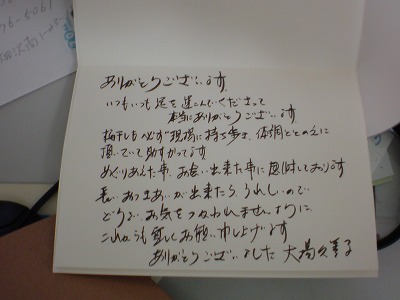 ありがとうございます。
いつもいつも足を運んでくださって
本当にありがとうございます
梅干しも必ず現場に持ち歩き、体調ととのえに
頂いて助かってます
めぐりあえた事、お会い出来た事に感謝しております
長いおつきあいが出来たら、うれしいので
どうぞ、お気をつかわれませんように
これからも宜しくお願い申し上げます
ありがとうございました 大場